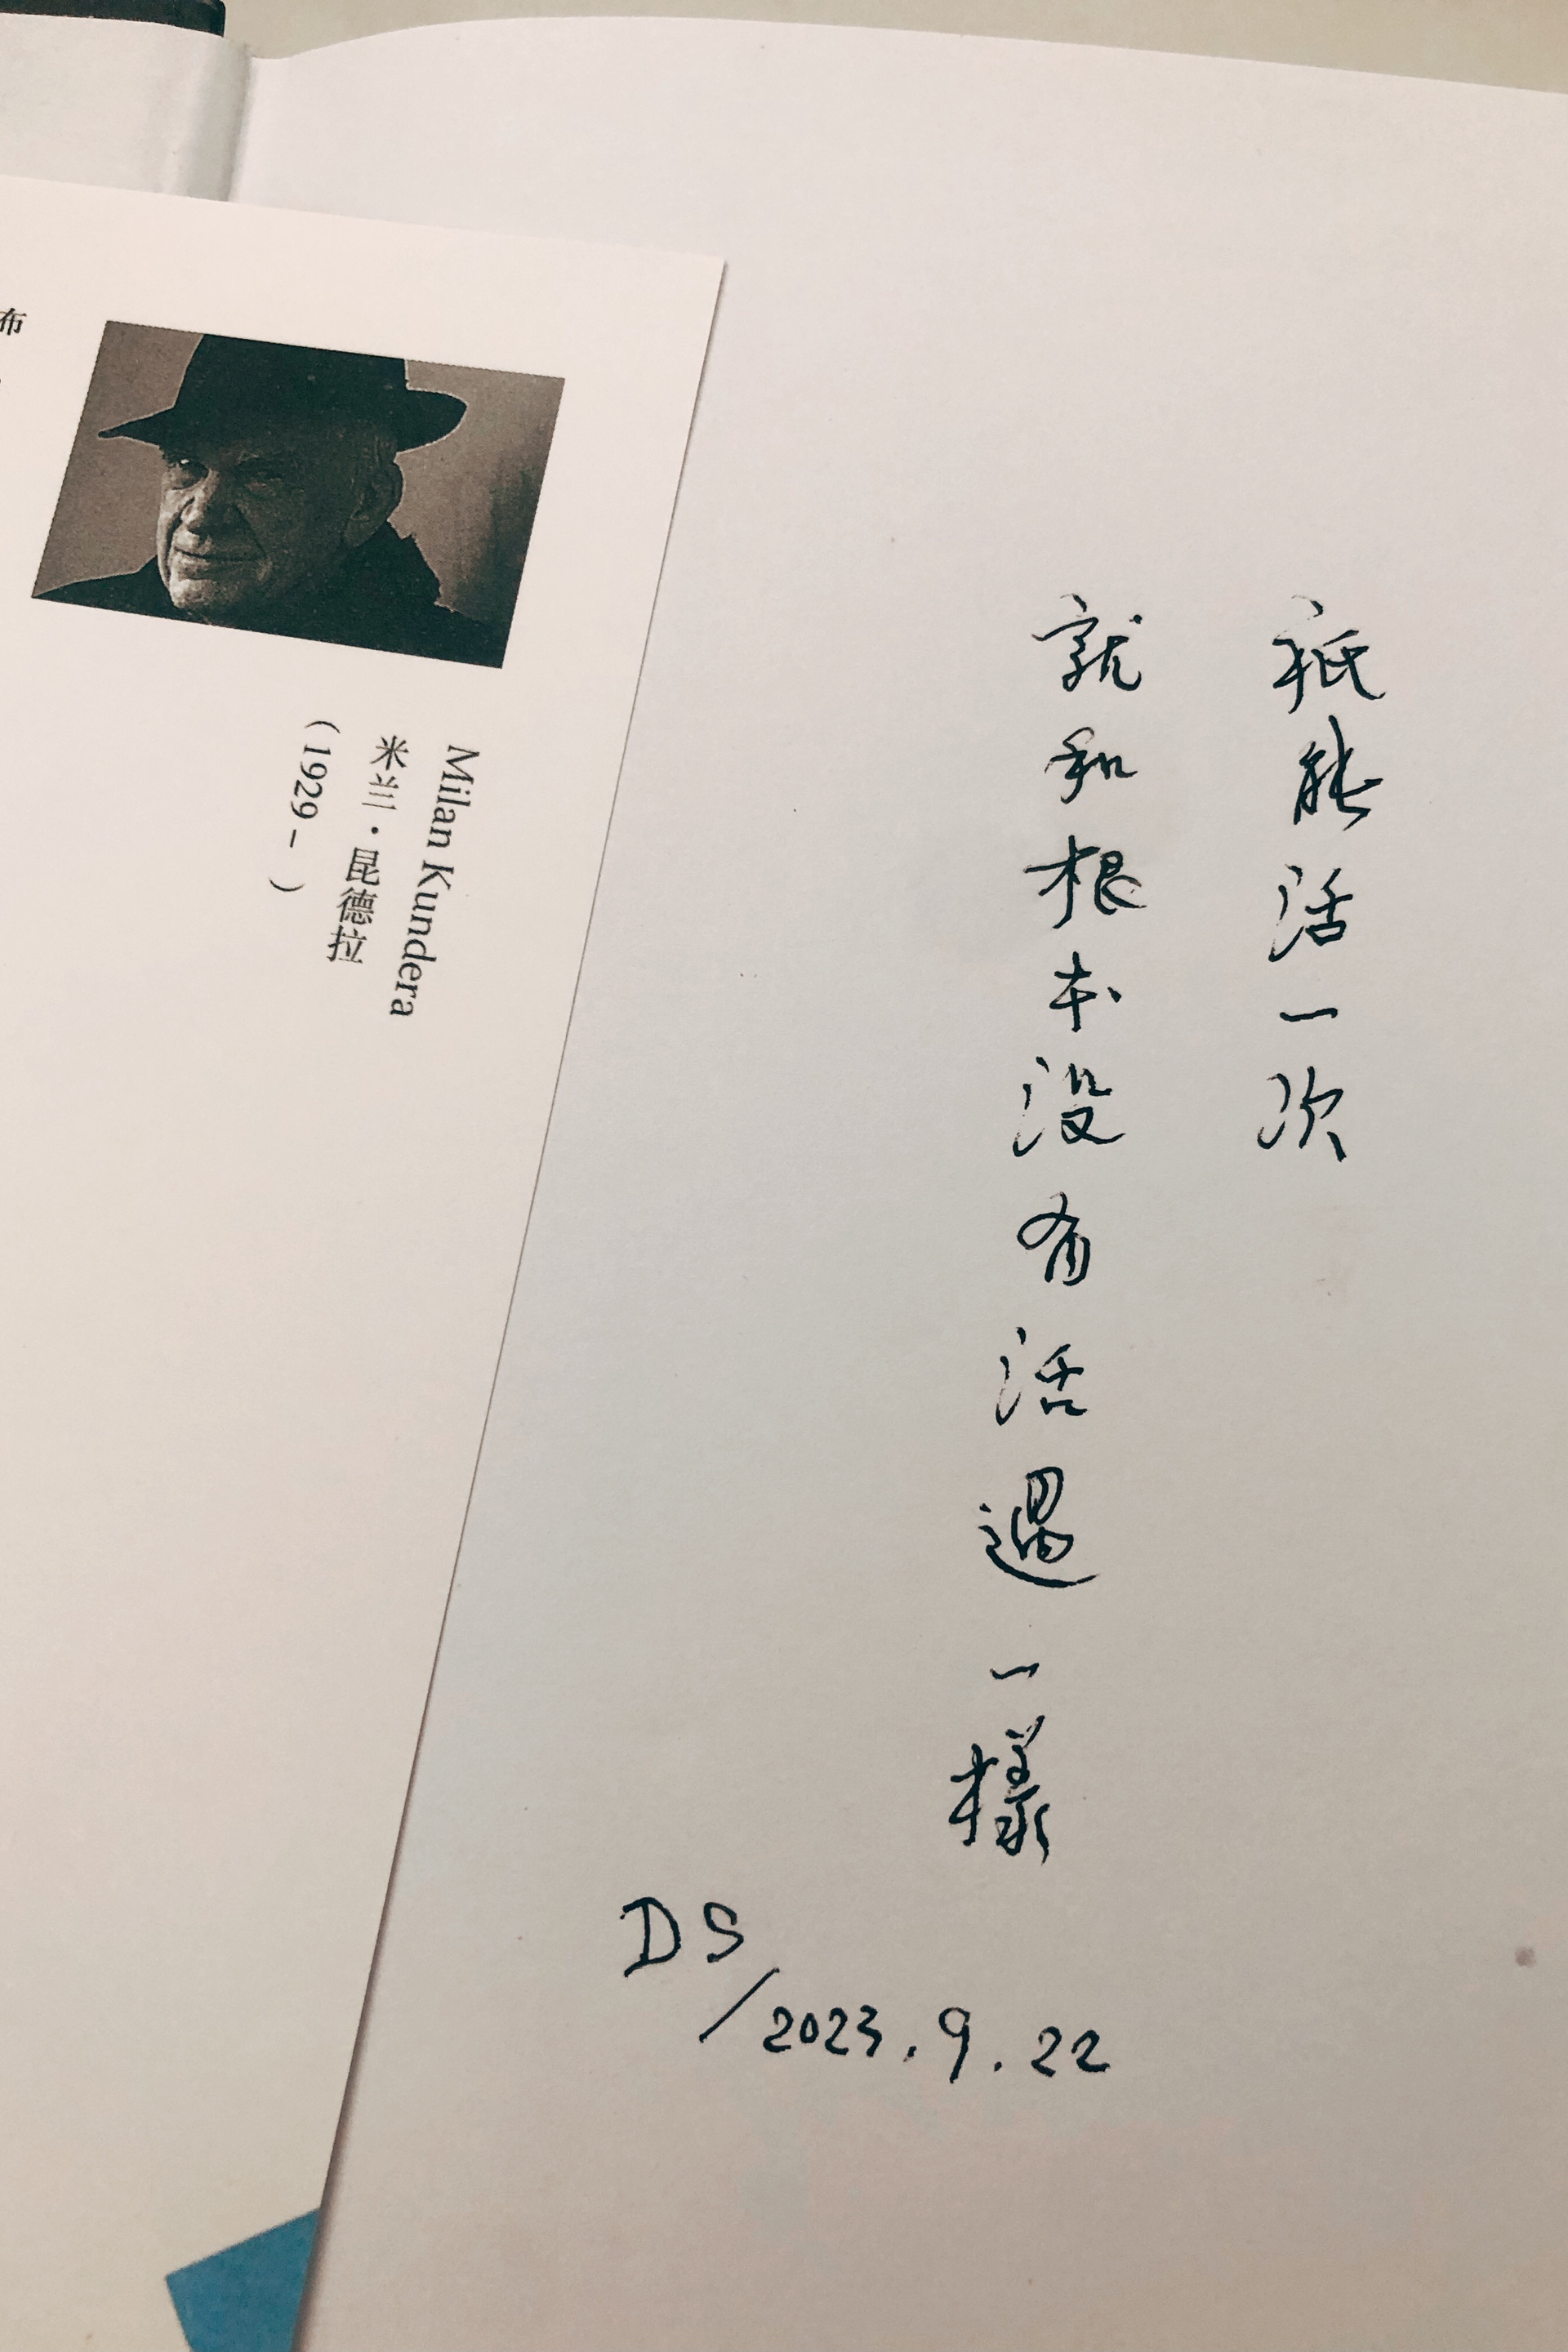 祇能活一次
就和根本没有活過一樣
DS
/2023.9.22
Milan Kundera
米兰·昆德拉
(1929– )
布